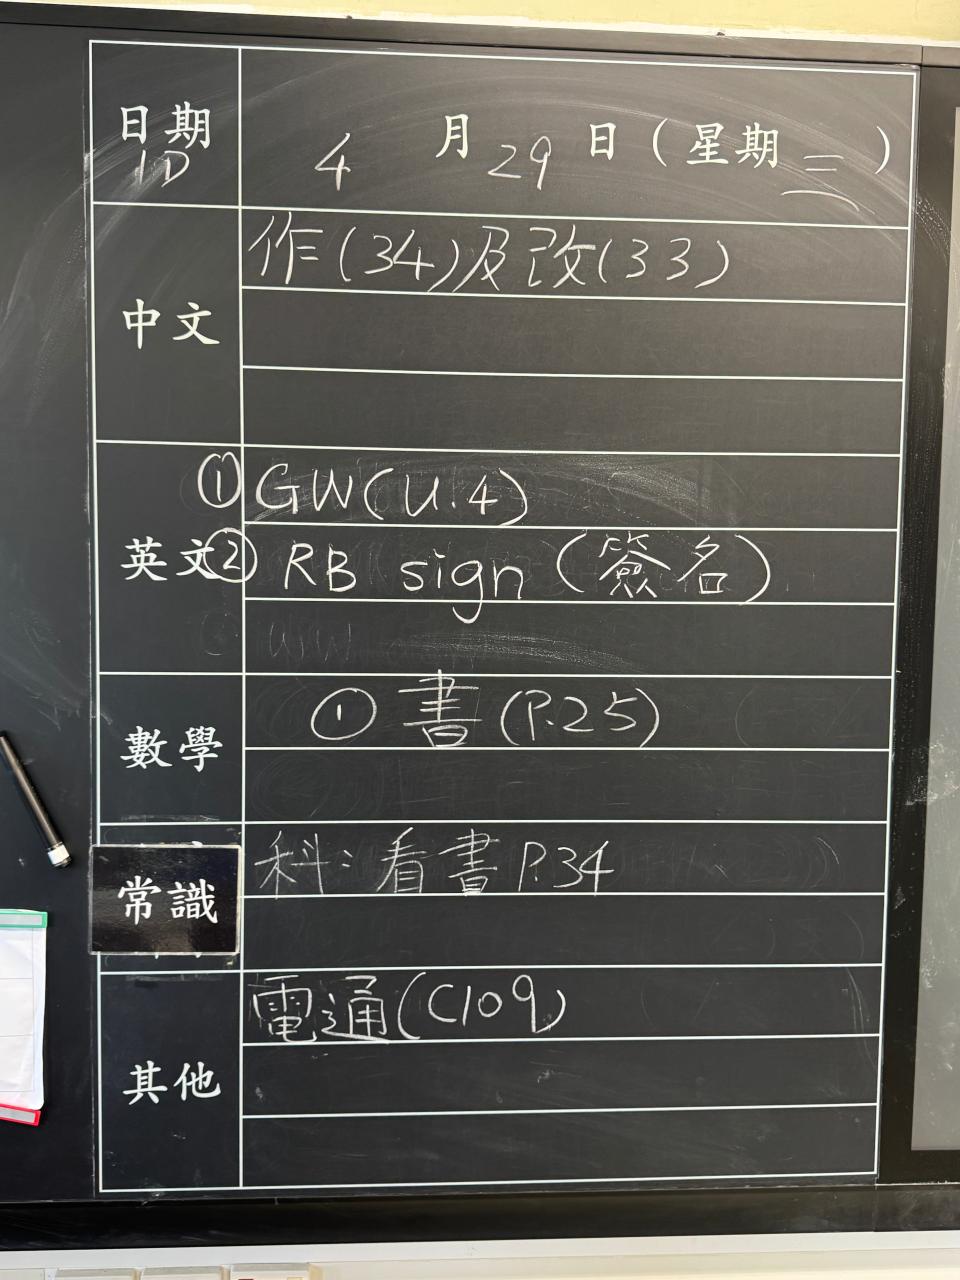 日期 4 月 29 日 (星期 三)
1D
中文 作(34)及改(33)
英文 ① GW(U.4)
② RB sign (簽名)
數學 ① 書 (P.25)
常識 科: 看書 P.34
其他 電通(C109)